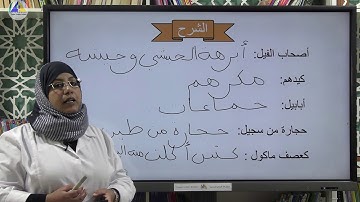 الشرح
أصحاب الفيل: أبرهة الحبشي وجيشه
كيدهم: مكرهم
أبابيل: جماعات
حجارة من سجيل: حجارة من طين
كعصف مأكول: كتبن أكلت منه